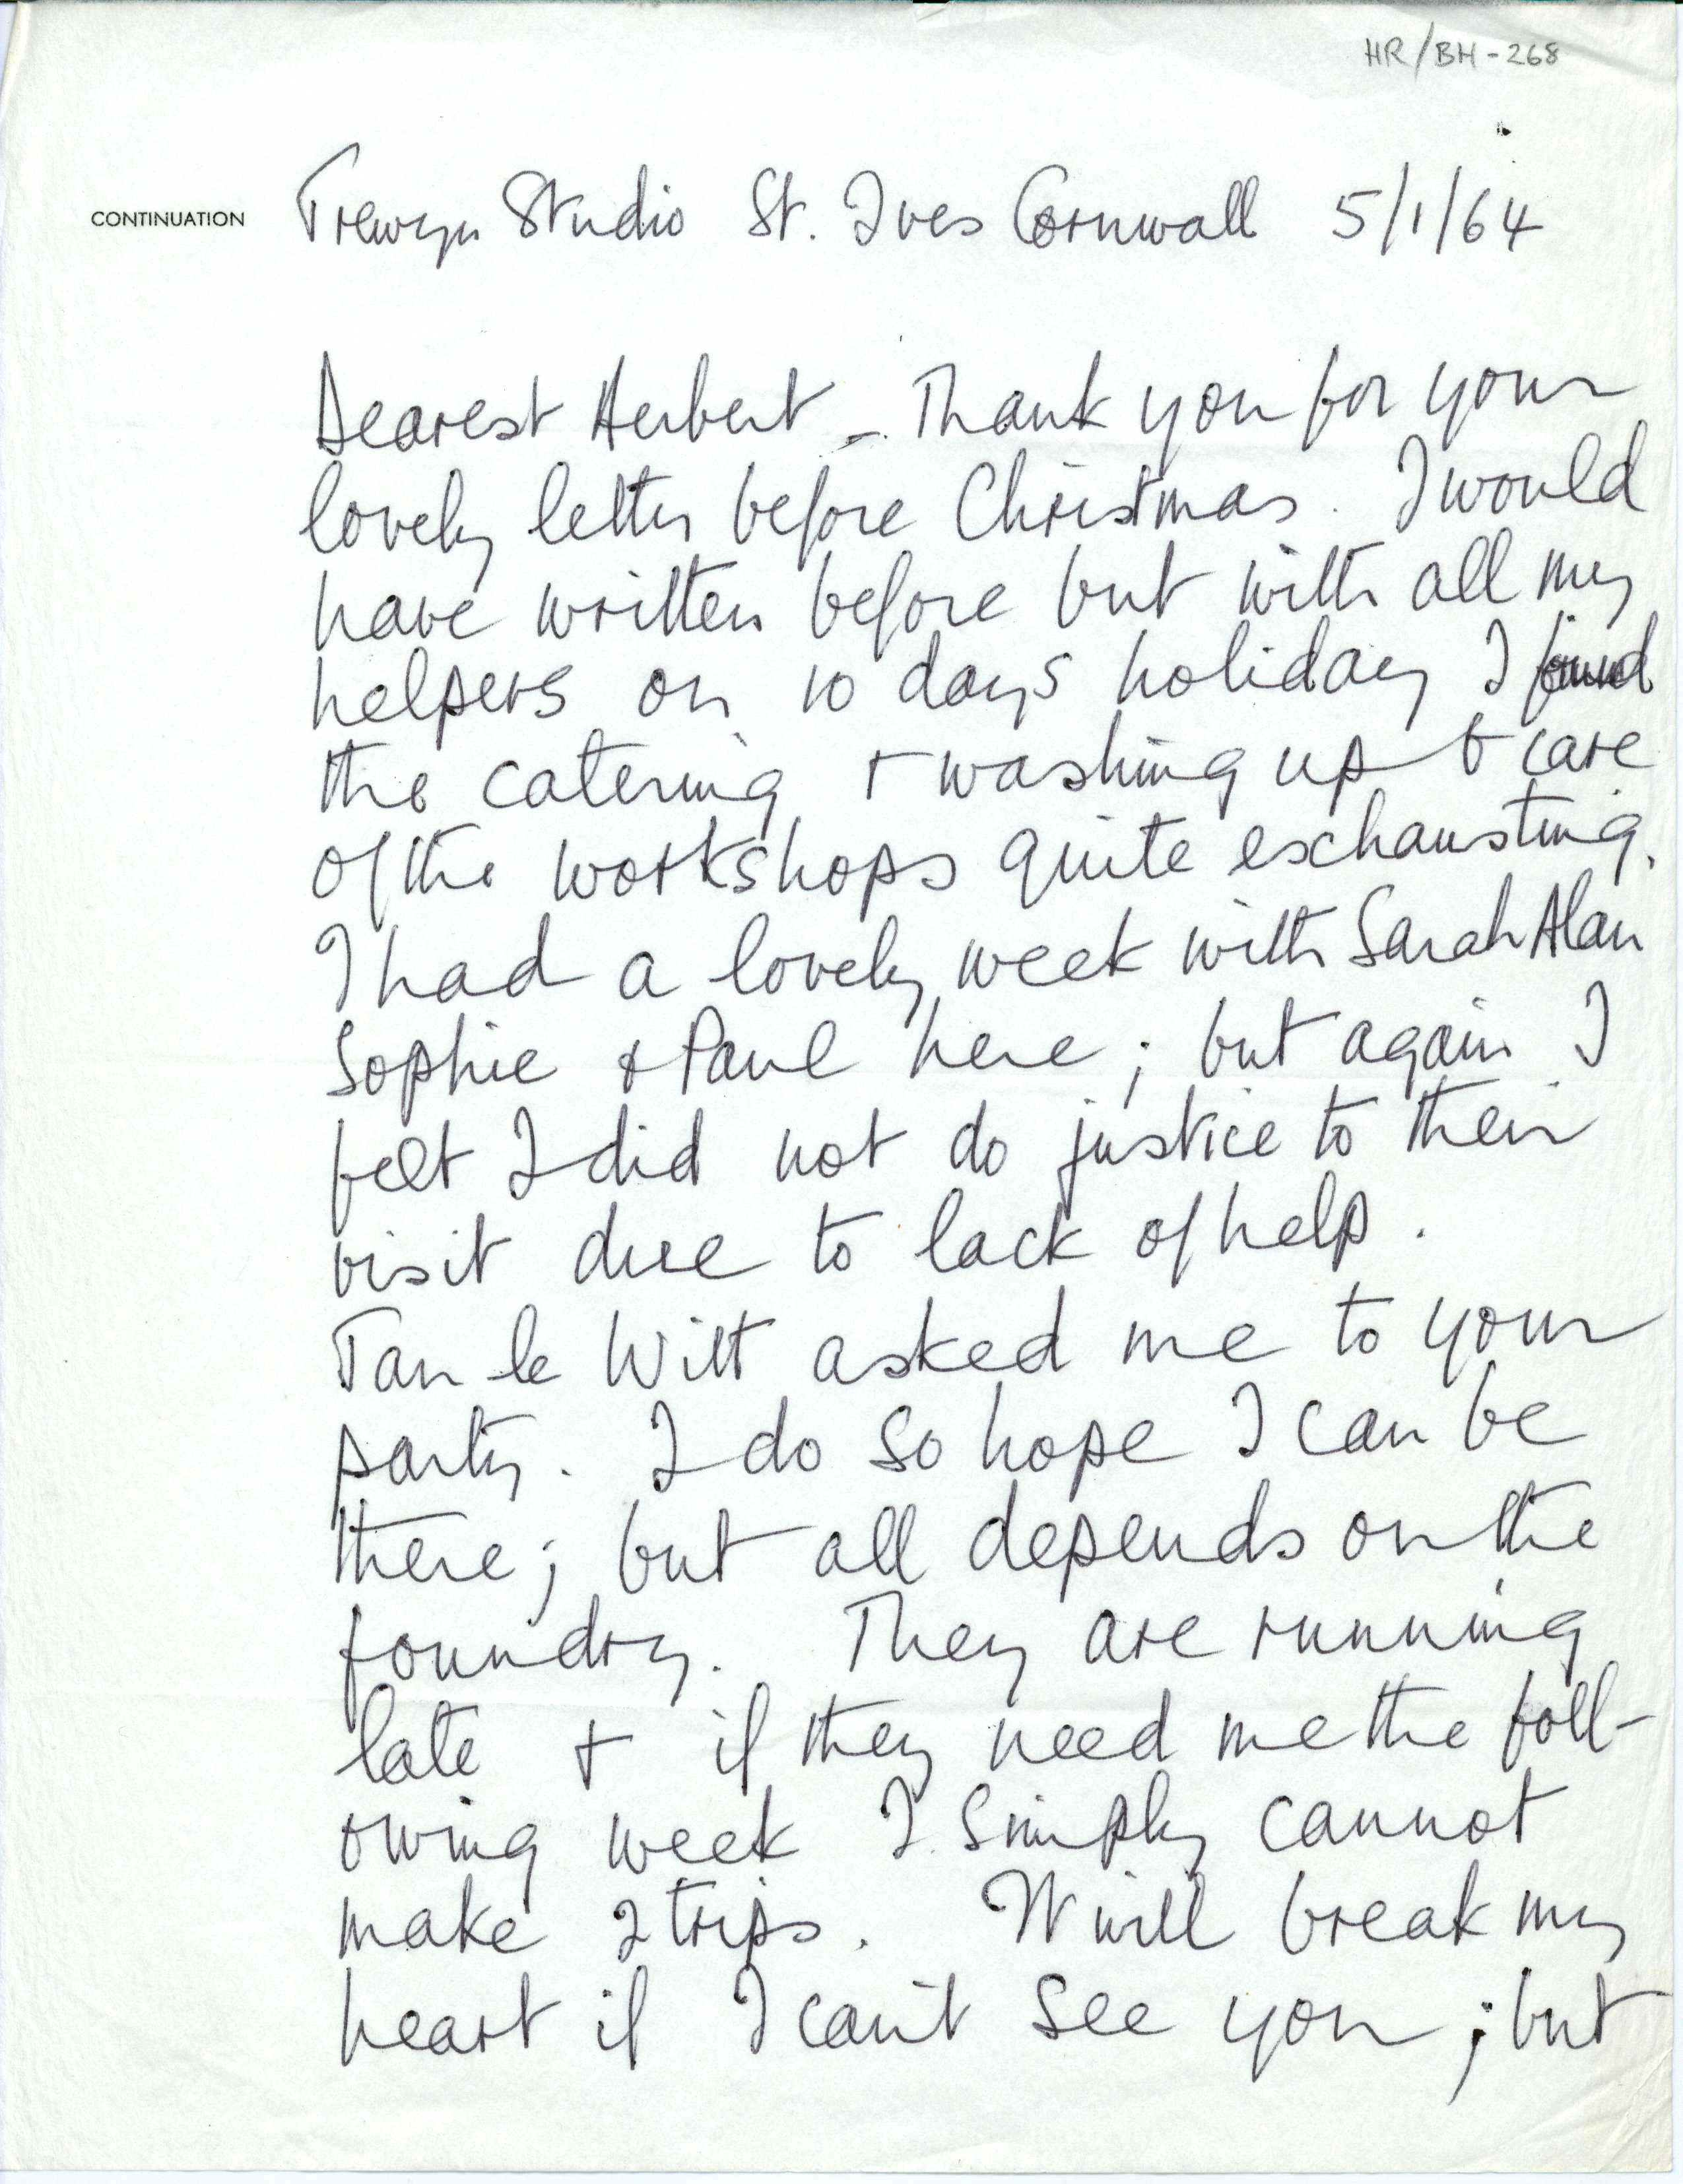 HR/BH-268
CONTINUATION Trewyn Studio St. Ives Cornwall 5/1/64
Dearest Herbert – Thank you for your
lovely letter before Christmas. I would
have written before but with all my
helpers on 10 days holiday I found
the catering + washing up & care
of the workshops quite exchausting.
I had a lovely week with Sarah Alan
Sophie & Paul here; but again I
felt I did not do justice to their
visit due to lack of help.
Jan le Witt asked me to your
party. I do so hope I can be
there; but all depends on the
foundry. They are running
late + if they need me the foll-
owing week I simply cannot
make 2 trips. It will break my
heart if I can't see you; but